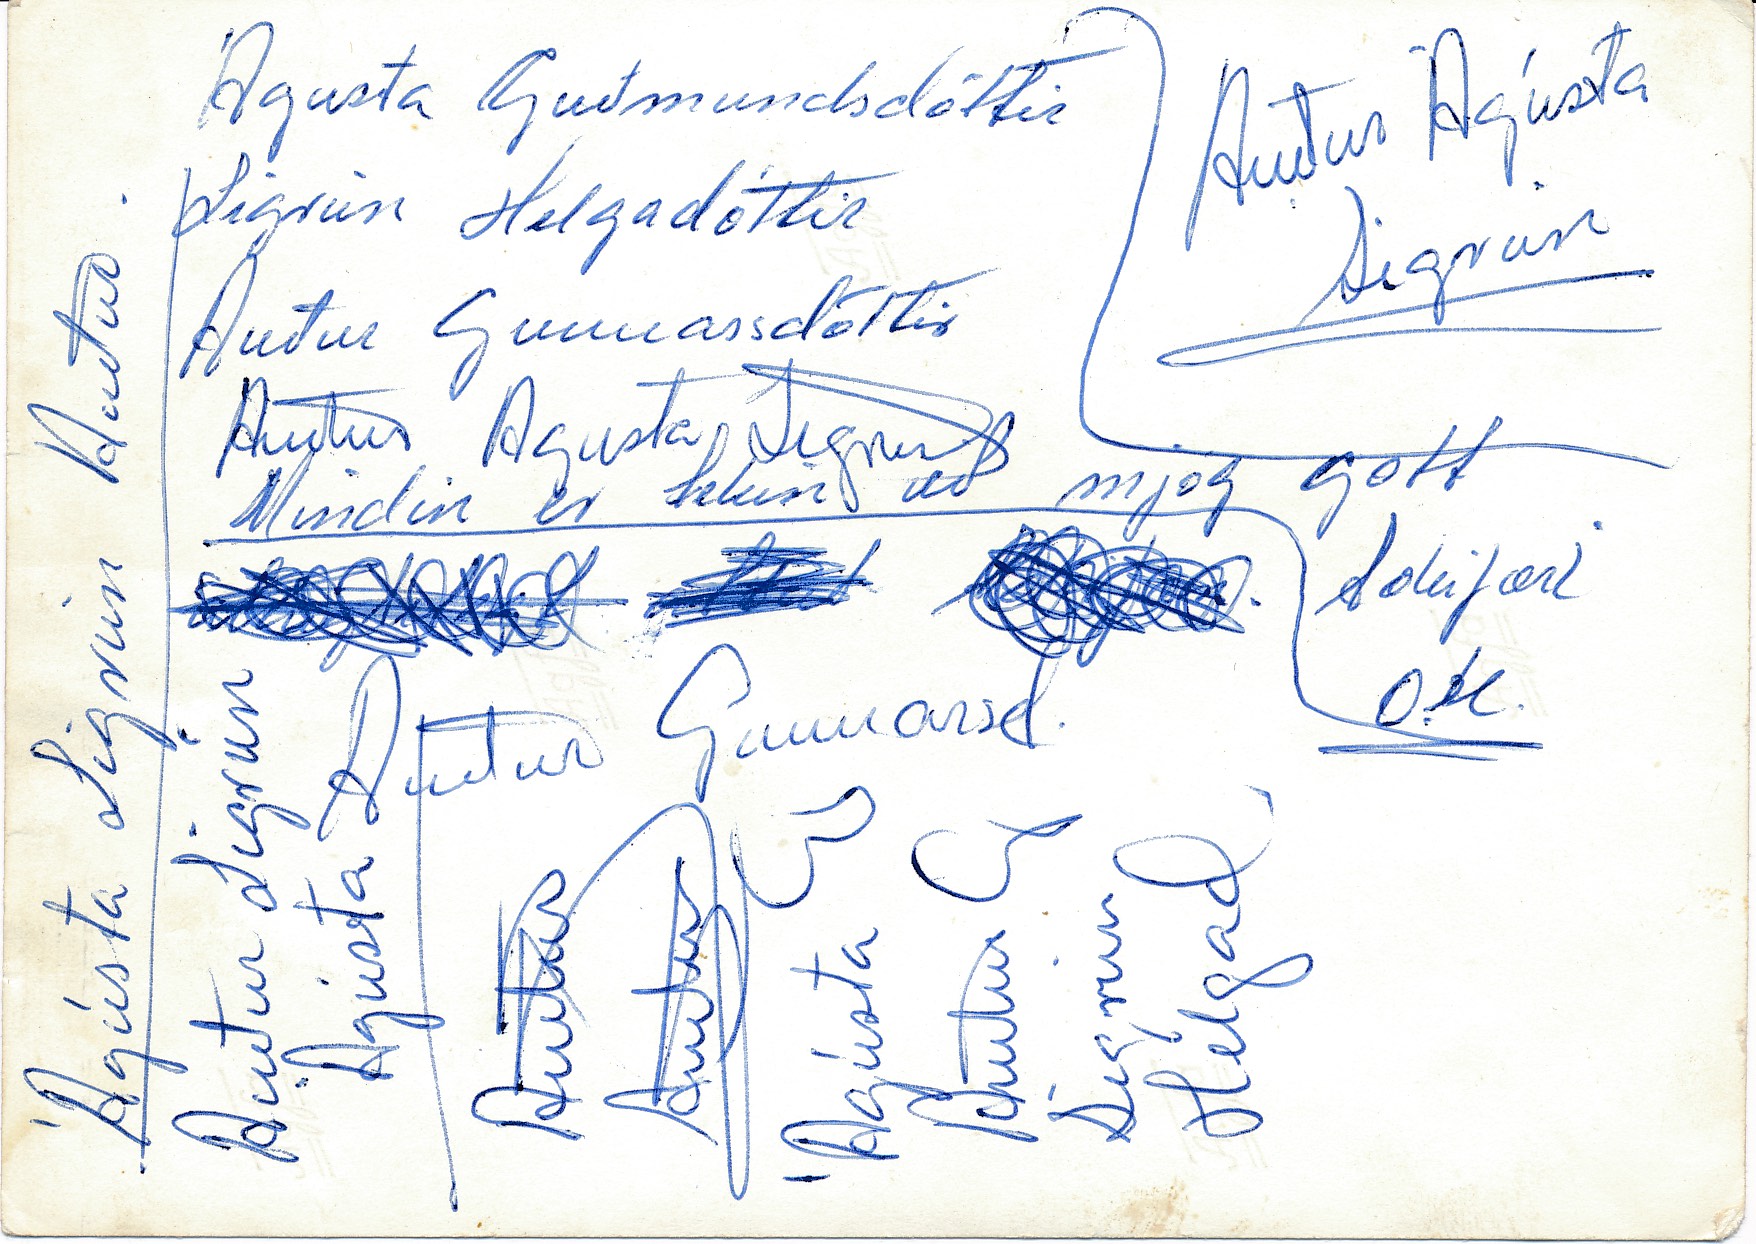 Ágústa Guðmundsdóttir
Sigrún Helgadóttir
Auður Gunnarsdóttir
Auður Agusta, Sigrún
Mindin er tekin að mjög gott
Auður Ágústa
Sigrún
O.K.
Auður Gunnarsd.
Ágústa Sigrún Auður.
Auður Sigrún
Ágústa
Auður
Auður
Ágústa G
Auður G
Sigrún
Helgad.